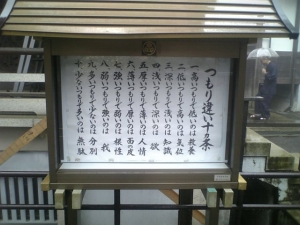 つもり違い十条
一、高いつもりで低いのは 教養
二、低いつもりで高いのは 気位
三、深いつもりで浅いのは 知識
四、浅いつもりで深いのは 欲
五、厚いつもりで薄いのは 人情
六、薄いつもりで厚いのは 面の皮
七、強いつもりで弱いのは 根性
八、弱いつもりで強いのは 我
九、多いつもりで少ないのは 分別
十、少ないつもりで多いのは 無駄